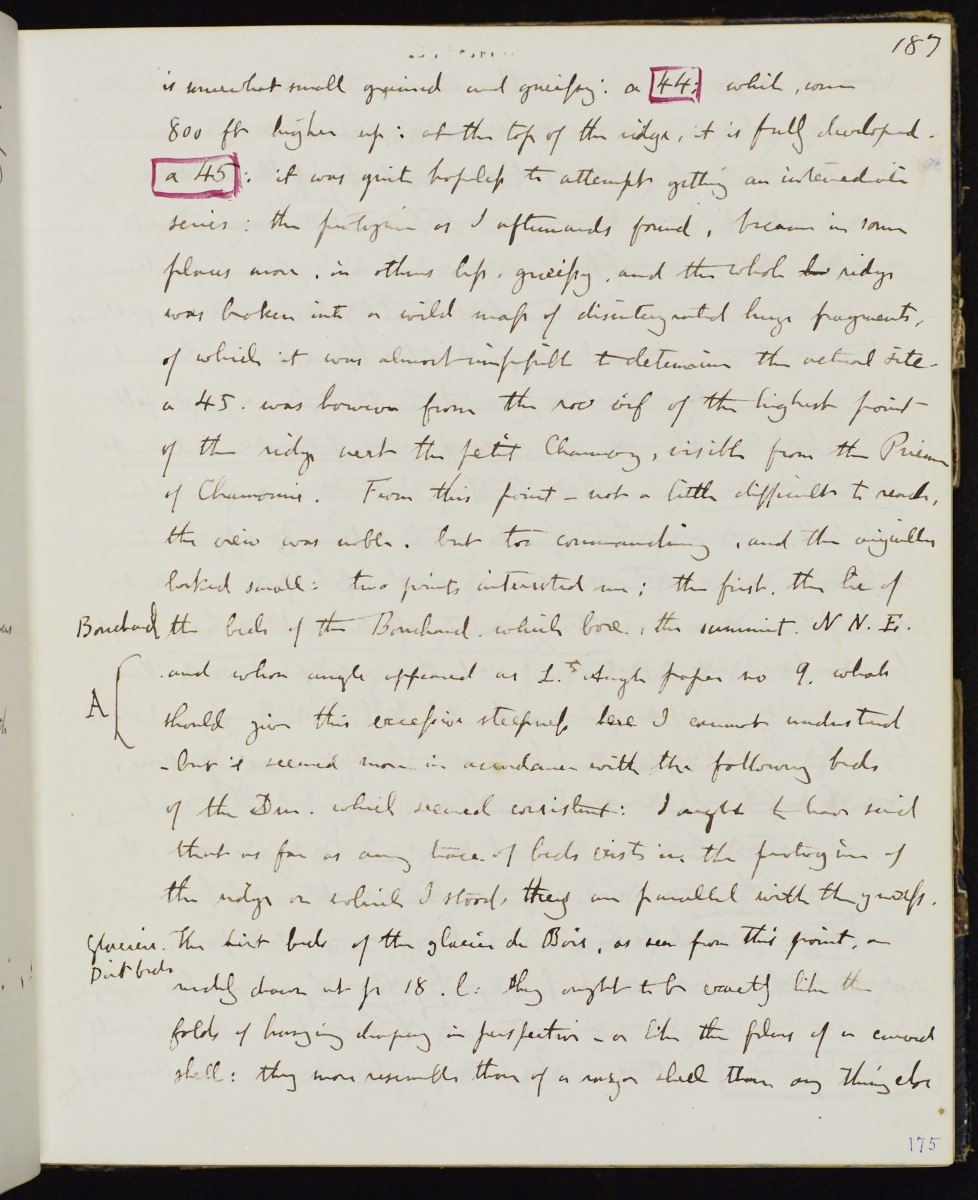 187
is somewhat small grained and gneissy: a 44; while, some
800 ft higher up: at the top of the ridge, it is fully developed.
a 45: it was quite hopeless to attempt getting an intermediate
series: the protogine as I afterwards found, became in some
places more, in others less, gneissy, and the whole ridge
was broken into a wild mass of disintegrated huge fragments,
of which it was almost impossible to determine the actual site.
a 45. was however from the roc vif of the highest point
of the ridge next the petit Charmoz, visible from the Prieure
of Chamonix. From this point - not a little difficult to reach,
the view was noble. but too commanding, and the aiguilles
looked small: two points interested me; the first, the lie of
Bouchard the beds of the Bouchard. which bore, the summit. N N. E.
A
and whose angle appeared as L.ᵗ Angle paper no 9. what
should give this excessive steepness here I cannot understand
- but it seemed more in accordance with the following beds
of the Dru. which seemed consistent: I ought to have said
that as far as any trace of beds exists in the protogine of
the ridge on which I stood, they are parallel with the gneiss.
Glaciers. Dirt beds
The dirt beds of the glacier du Bois, as seen from this point, are
rudely drawn at p 18. l: they ought to be exactly like the
folds of hanging drapery in perspective - or like the of a curved
shell: they more resemble those of a razor shell than any thing else
175